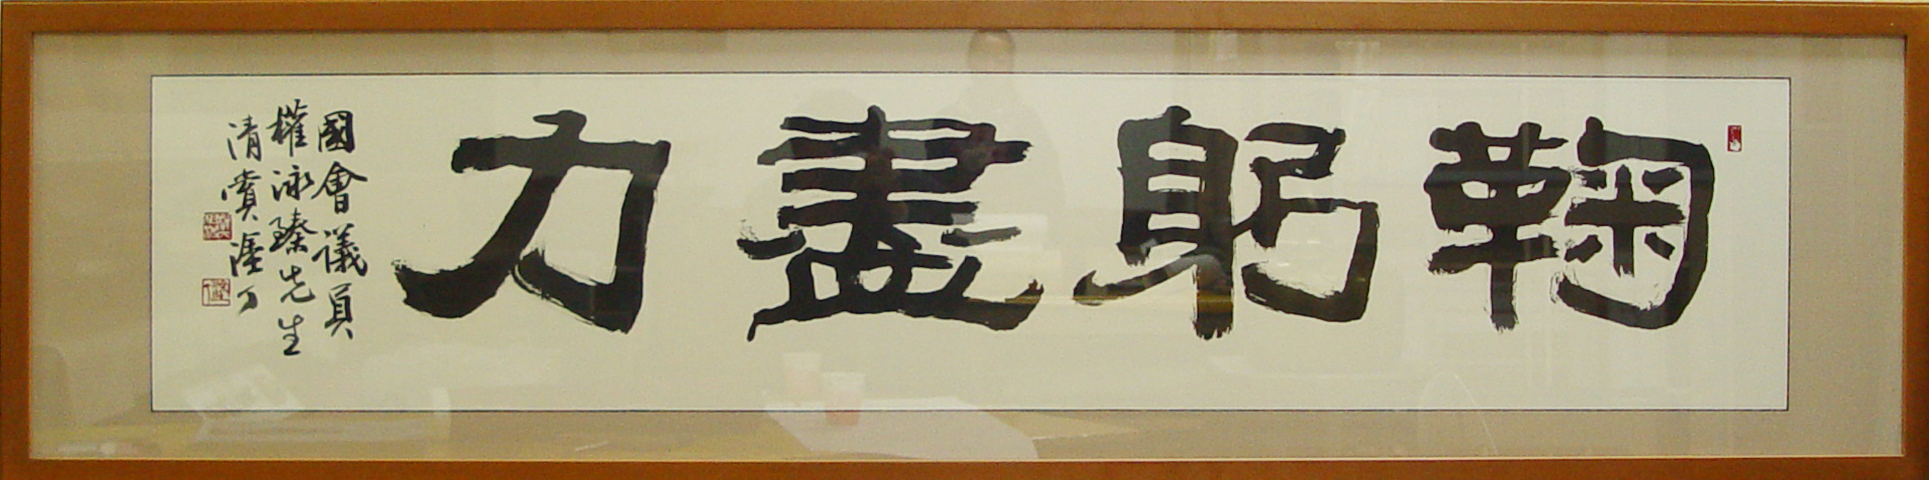 鞠躬盡力
國會議員
權泳臻先生
清賞